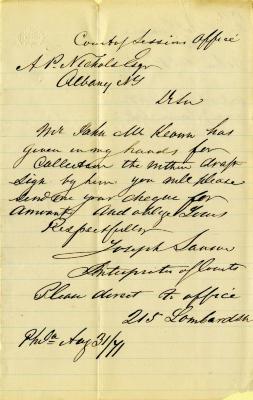 Court of Sessions Office
A. P. Nichols Esqr
Albany NY
D Sir
Mr John McKeown has
given in my hands for
Collection the within draft
Sign by him you will please
send me your cheque for
amount, And oblige Yours
Respectfully
Joseph
Interpreter of Courts
Please direct to office
215 Lombard St
Phila Aug 31/71